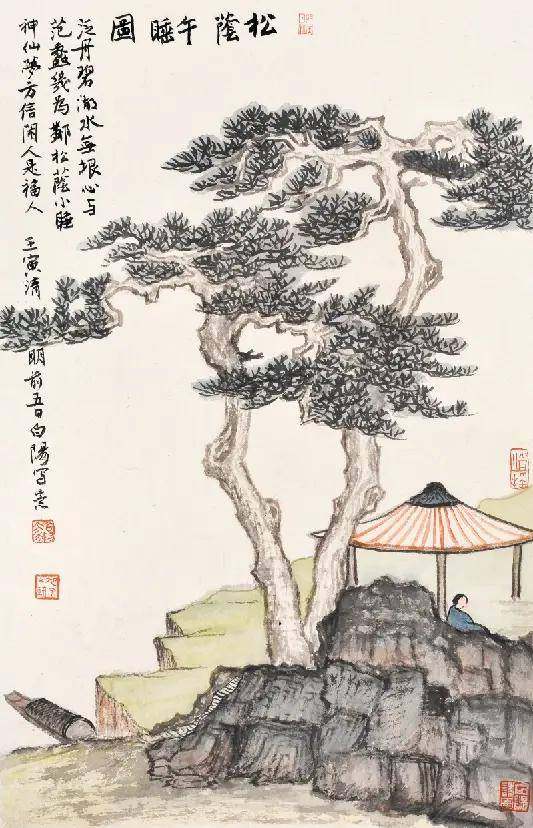 松蔭午睡圖
泛舟碧湖水無垠心與
范蠡幾為鄰松蔭小睡
神仙夢方信閑人是福人 壬寅清明前五日白陽寫意